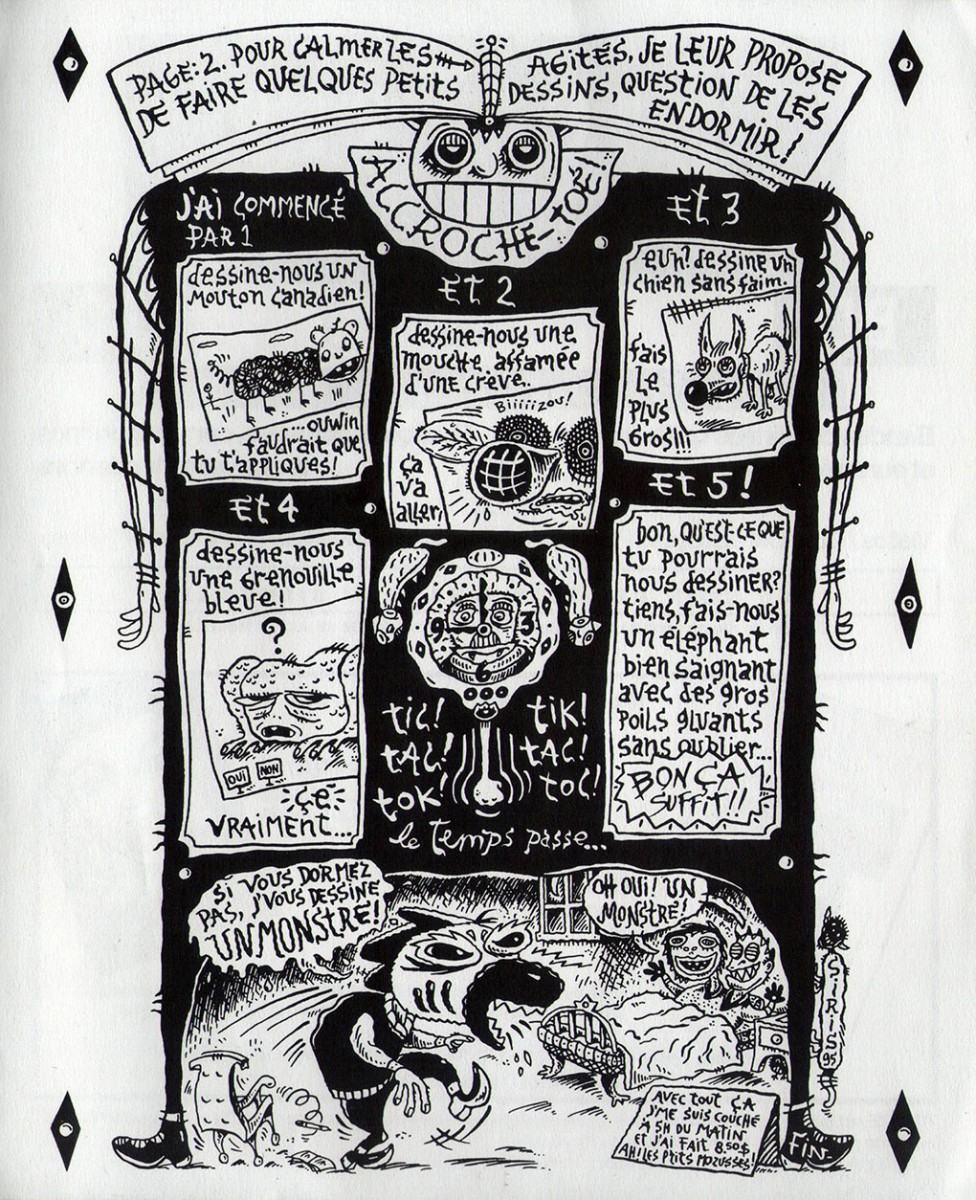 PAGE: 2. POUR CALMER LES
DE FAIRE QUELQUES PETITS
AGITÉS, JE LEUR PROPOSE
DESSINS, QUESTION DE LES
ENDORMIR!
ACCROCHE-TOÉ!
J'AI COMMENCÉ
PAR 1
dessine-nous un
mouton canadien!
...ouwin
faudrait que
tu t'appliques!
Et 2
dessine-nous une
mouche affamée
d'une crève..
Biiiiizou!
ça
va
aller
Et 3
euh? dessine un
chien sans faim.
fais
le
plus
gros!!!
Et 4
dessine-nous
une grenouille
bleue!
?
OUI
NON
ÇÉ
VRAIMENT...
9
3
6
tic!
tac!
tok
tik!
tac!
toc!
le temps passe...
Et 5!
bon, qu'est ce que
tu pourrais
nous dessiner?
tiens, fais-nous
un éléphant
bien saignant
avec des gros
poils gluants
sans oublier...
BON ÇA
SUFFIT!!
SI VOUS DORMEZ
PAS, J'VOUS DESSINE
UN MONSTRE!
OH OUI! UN
MONSTRE!
SIRIS
95
AVEC TOUT ÇA
J'ME SUIS COUCHÉ
À 5H DU MATIN
ET J'AI FAIT 8.50$
AH! LES PTITS MOZUSSES!
FIN